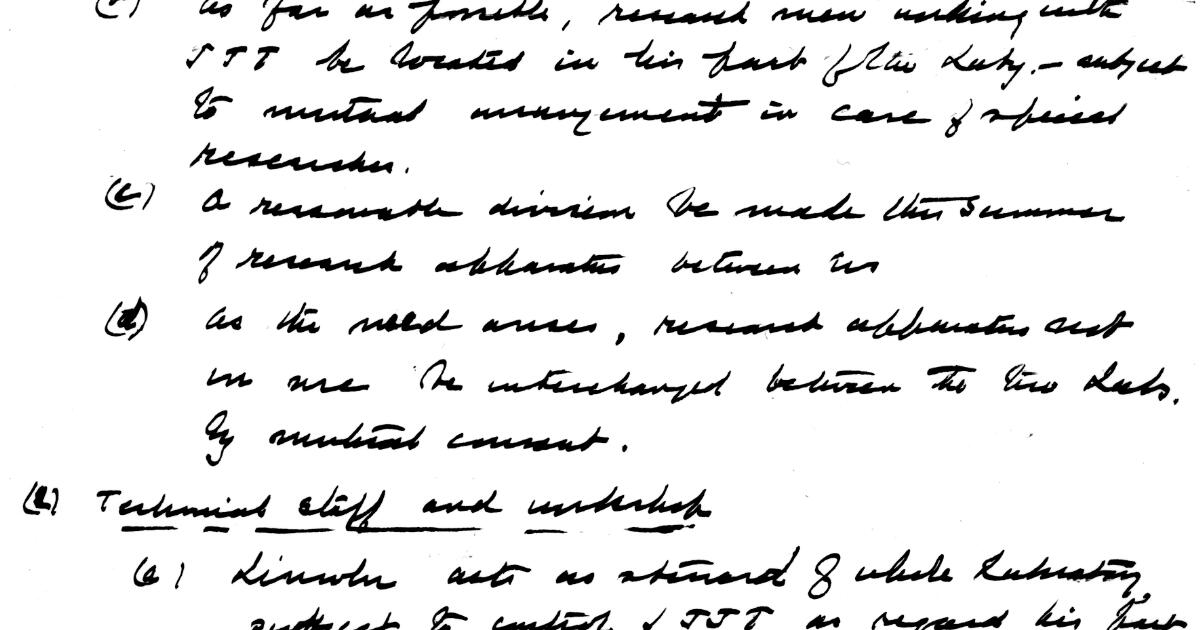 (b) as far as possible, research men working with
JJT be located in his part of the Laby. – subject
to mutual arrangement in case of special
researches.
(c) a reasonable division be made this summer
of research apparatus between us
(d) as the need arises, research apparatus not
in use be interchanged between the two Labs.
by mutual consent.
Technical staff and workshop
(a) Lincoln acts as steward of whole Laboratory
subject to control of JJT as regard his part